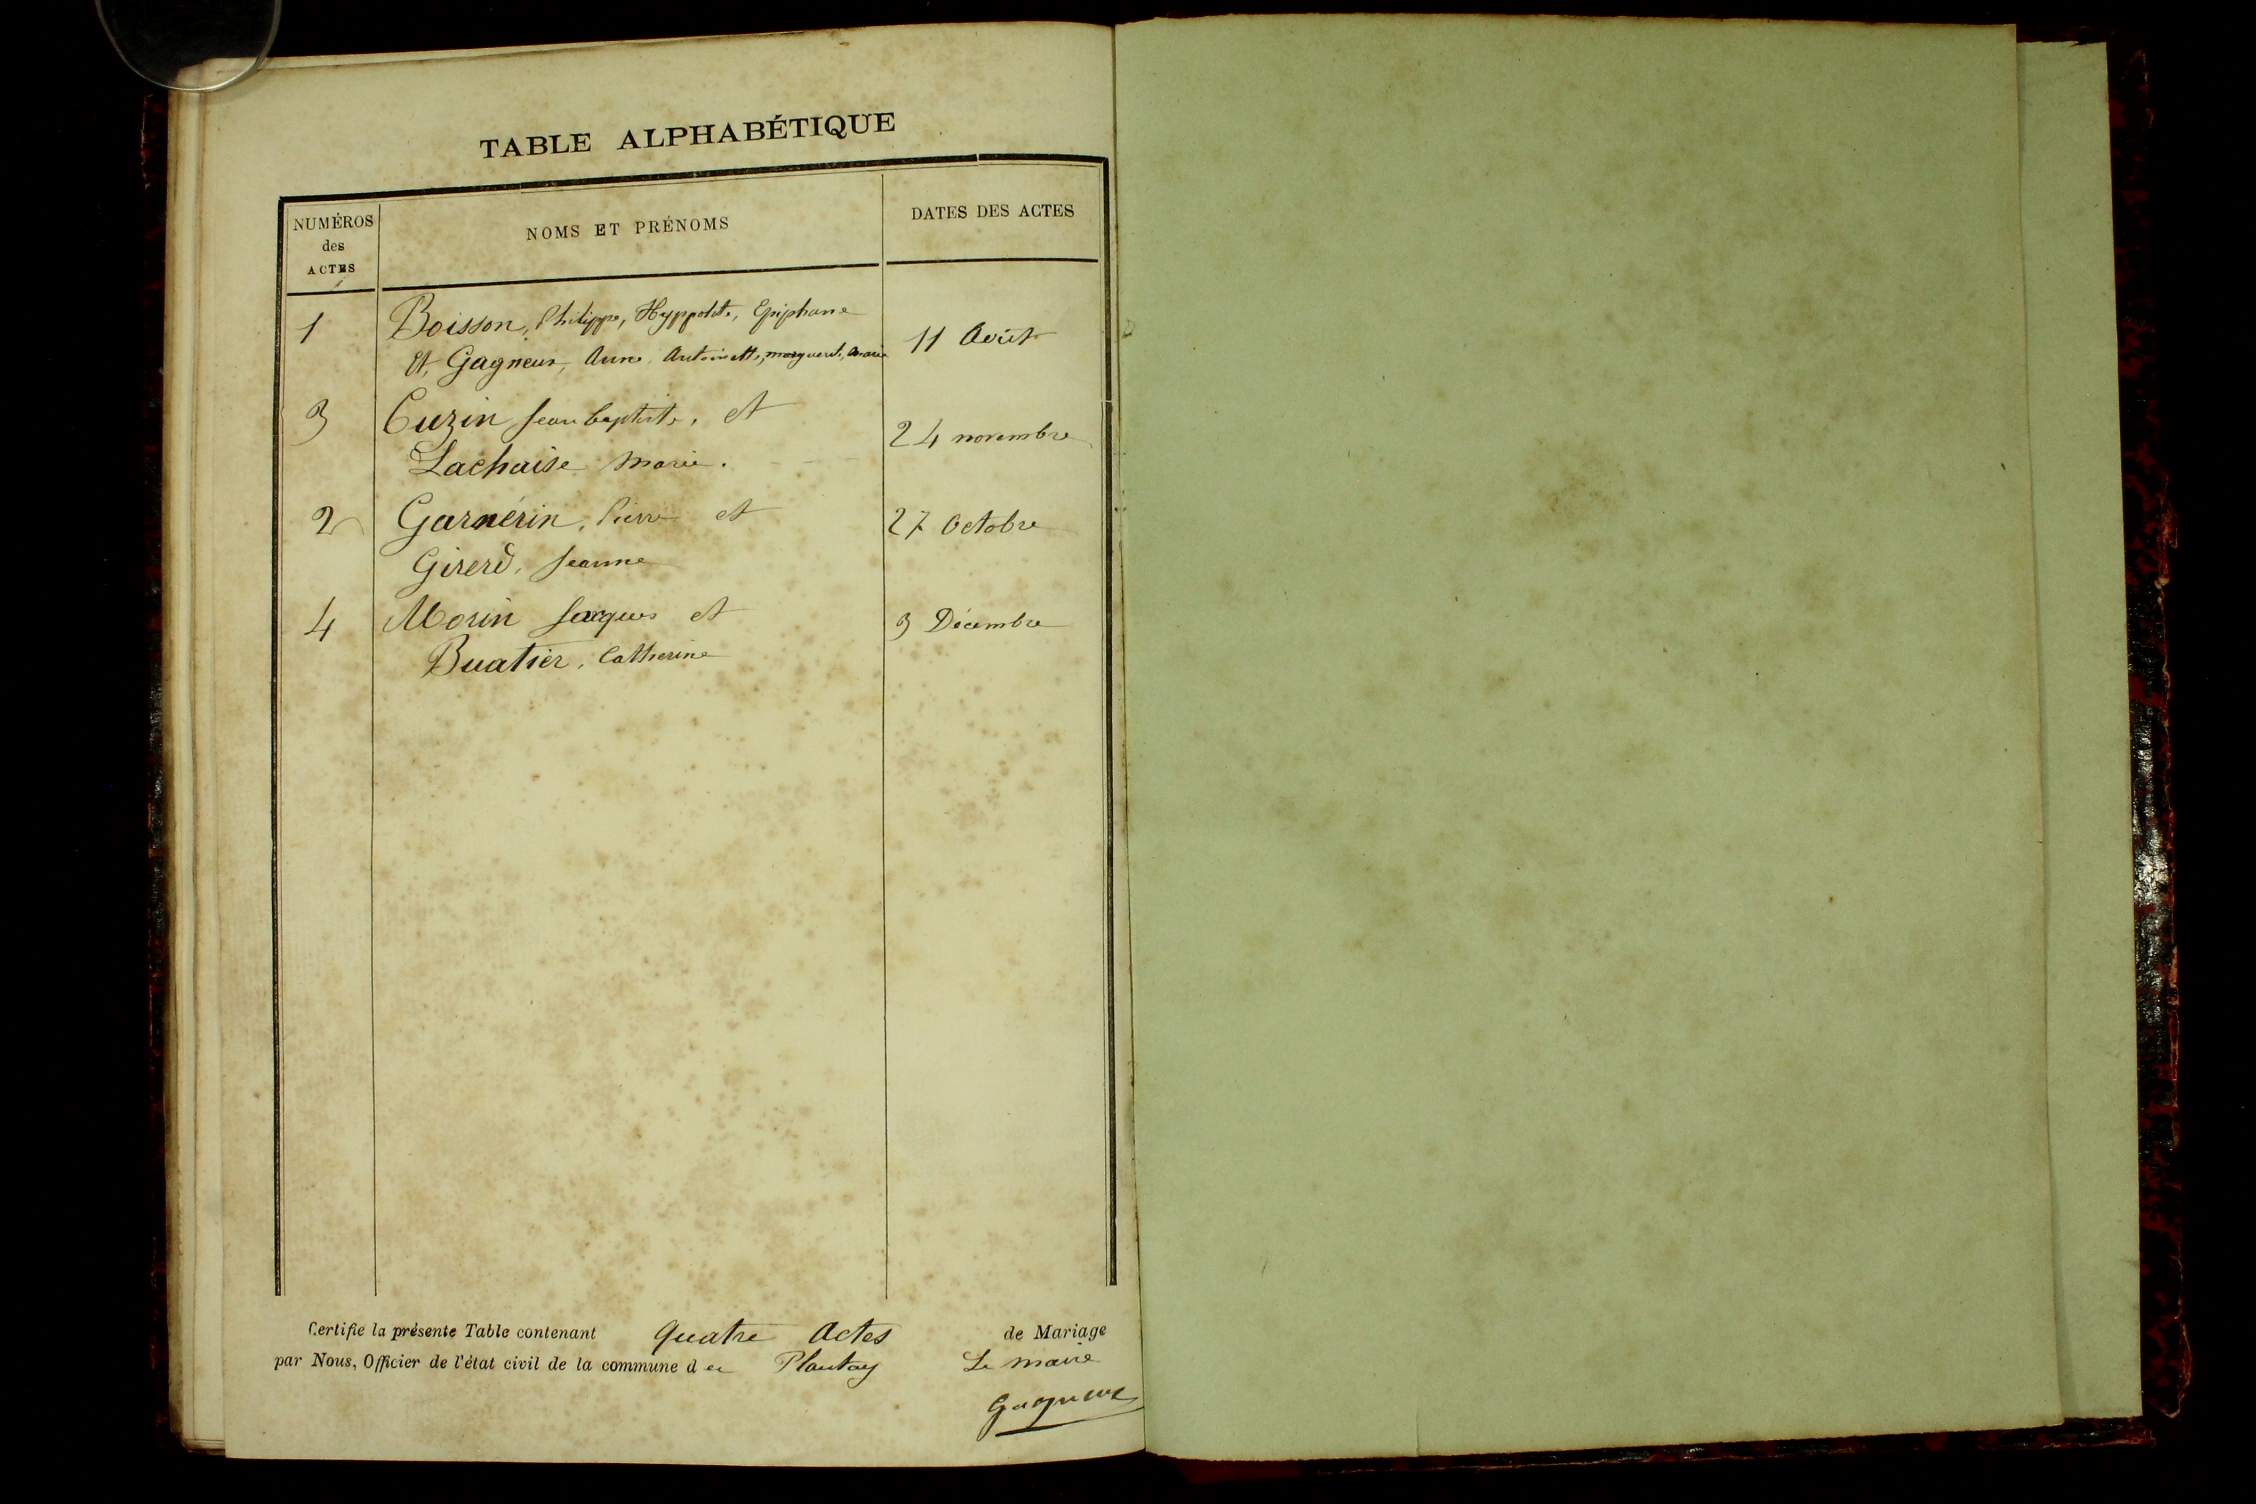 TABLE ALPHABÉTIQUE
NUMÉROS
des
ACTES
NOMS ET PRÉNOMS
DATES DES ACTES
1
Boisson, Philippe, Hyppolite, Epiphane
Et, Gagneur, Anne, Antoinette, marguerite, Marie
11 Août
3
Cuzin Jean baptiste, et
Lachaise Marie.
24 novembre
2
Garnérin, Pierre et
Girerd, Jeanne
27 Octobre
4
Morin Jacques et
Buatier, Catherine
3 Décembre
Certifie la présente Table contenant quatre Actes de Mariage
par Nous, Officier de l'état civil de la commune d u Plantay Le maire
Gagneur